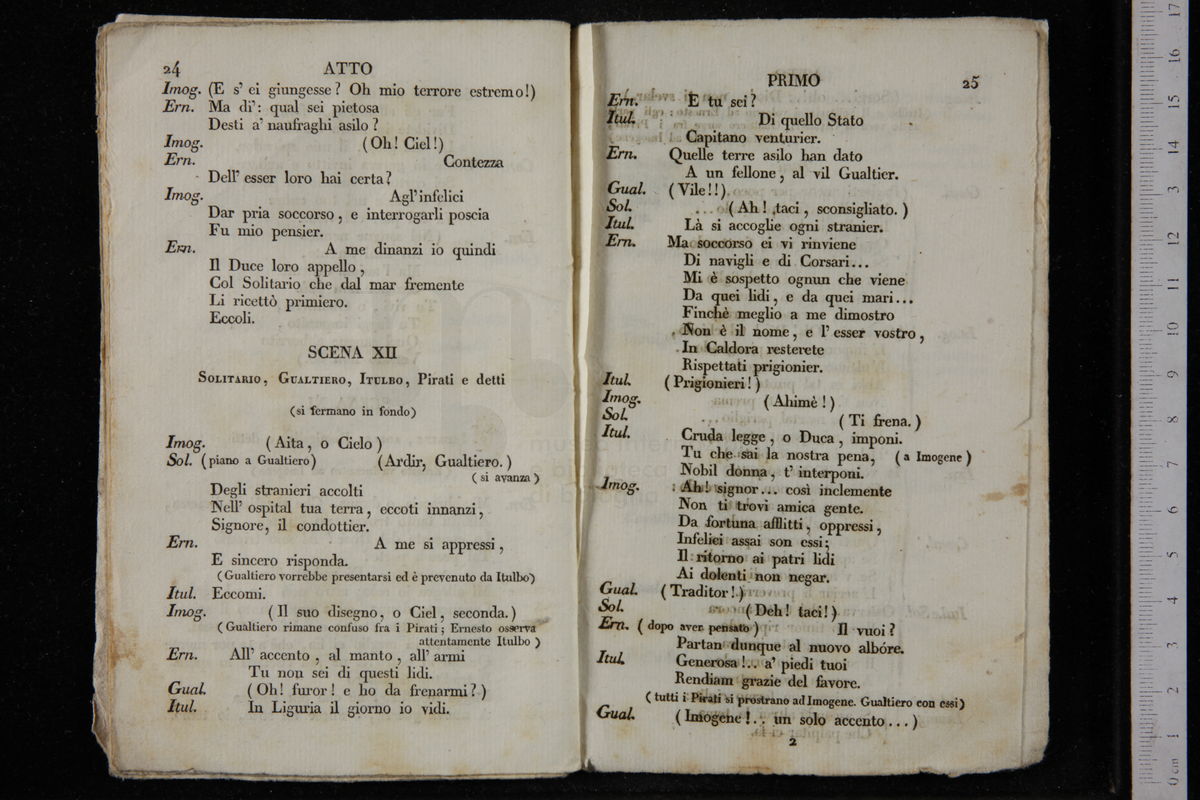 24 ATTO
Imog. (E s' ei giungesse? Oh mio terrore estremo!)
Ern. Ma di': qual sei pietosa
Desti a' naufraghi asilo?
Imog. (Oh! Ciel!)
Ern. Contezza
Dell' esser loro hai certa?
Imog. Agl' infelici
Dar pria soccorso, e interrogarli poscia
Fu mio pensier.
Ern. A me dinanzi io quindi
Il Duce loro appello,
Col Solitario che dal mar fremente
Li ricettò primiero.
Eccoli.
SCENA XII
SOLITARIO, GUALTIERO, ITULBO, Pirati e detti
(si fermano in fondo)
Imog. (Aita, o Cielo)
Sol. (piano a Gualtiero) (Ardir, Gualtiero.)
(si avanza)
Degli stranieri accolti
Nell' ospital tua terra, eccoti innanzi,
Signore, il condottier.
Ern. A me si appressi,
E sincero risponda.
(Gualtiero vorrebbe presentarsi ed è prevenuto da Itulbo)
Itul. Eccomi.
Imog. (Il suo disegno, o Ciel, seconda.)
(Gualtiero rimane confuso fra i Pirati; Ernesto osserva
attentamente Itulbo)
Ern. All' accento, al manto, all' armi
Tu non sei di questi lidi.
Gual. (Oh! furor! e ho da frenarmi?)
Itul. In Liguria il giorno io vidi.
PRIMO 25
Ern. E tu sei?
Itul. Di quello Stato
Capitano venturier.
Ern. Quelle terre asilo han dato
A un fellone, al vil Gualtier.
Gual. (Vile!!)
Sol. (Ah! taci, sconsigliato.)
Itul. Là si accoglie ogni stranier.
Ern. Ma soccorso ei vi rinviene
Di navigli e di Corsari...
Mi è sospetto ognun che viene
Da quei lidi, e da quei mari...
Finchè meglio a me dimostro
Non è il nome, e l' esser vostro,
In Caldora resterete
Rispettati prigionier.
Itul. (Prigionieri!)
Imog. (Ahimè!)
Sol. (Ti frena.)
Itul. Cruda legge, o Duca, imponi.
Tu che sai la nostra pena, (a Imogene)
Nobil donna, t' interponi.
Imog. Ah! signor... così inclemente
Non ti trovi amica gente.
Da fortuna afflitti, oppressi,
Infelici assai son essi;
Il ritorno ai patri lidi
Ai dolenti non negar.
Gual. (Traditor!)
Sol. (Deh! taci!)
Ern. (dopo aver pensato) Il vuoi?
Partan dunque al nuovo albóre.
Itul. Generosa!.. a' piedi tuoi
Rendiam grazie del favore.
(tutti i Pirati si prostrano ad Imogene. Gualtiero con essi)
Gual. (Imogene!.. un solo accento...)
2